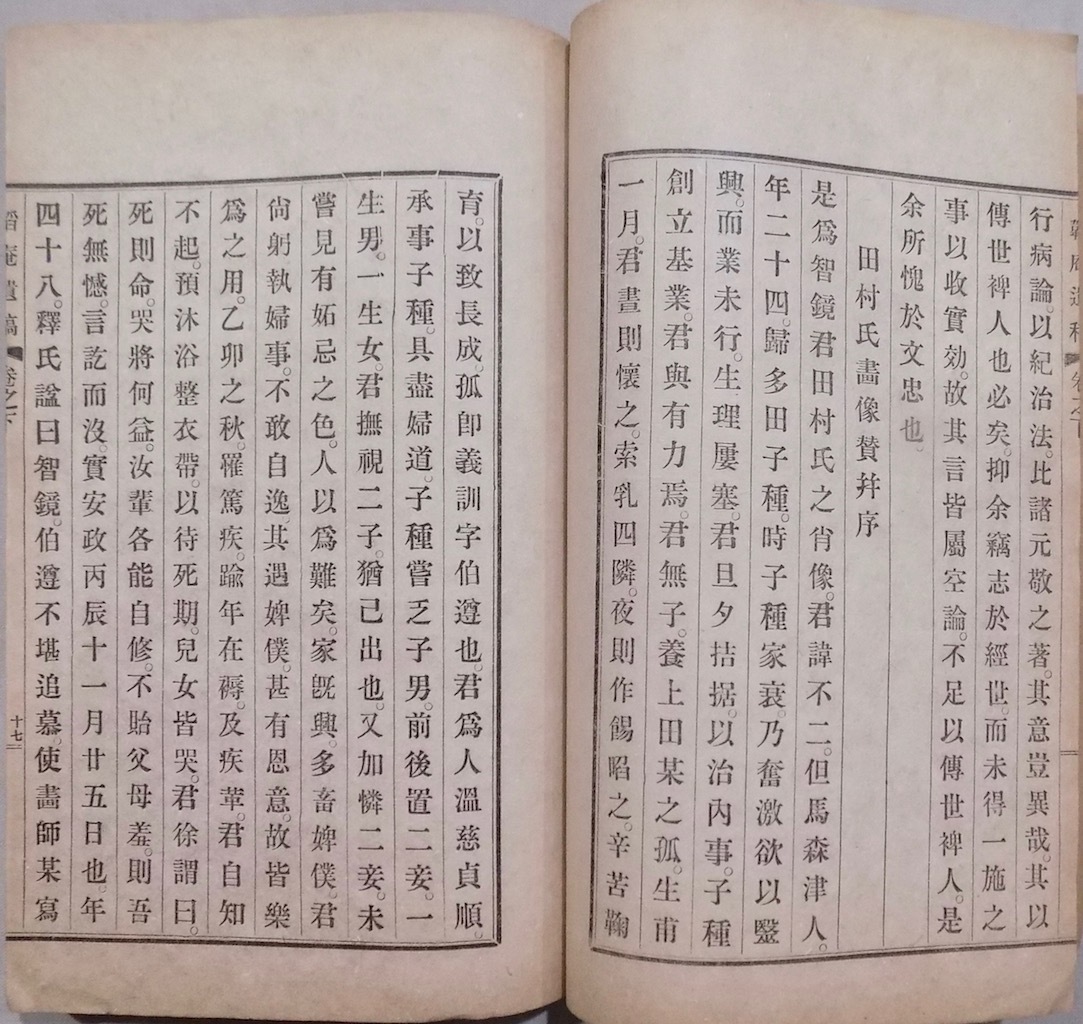 行病論。以紀治法。比諸元敬之著。其意豈異哉。其以
傳世裨人也必矣。抑余竊志於經世。而未得一施之
事以收實効。故其言皆屬空論。不足以傳世裨人。是
余所愧於文忠也。
田村氏畵像贊幷序
是爲智鏡君田村氏之肖像。君諱不二。但馬森津人。
年二十四。歸多田子種。時子種家衰。乃奮激欲以毉
興。而業未行。生理屢塞。君旦夕拮据。以治內事。子種
創立基業。君與有力焉。君無子。養上田某之孤。生甫
一月。君晝則懷之。索乳四隣。夜則作餳啗之。辛苦鞠
育。以致長成。孤卽義訓字伯遵也。君爲人溫慈貞順。
承事子種。具盡婦道。子種嘗乏子男。前後置二妾。一
生男。一生女。君撫視二子。猶己出也。又加憐二妾。未
嘗見有妬忌之色。人以爲難矣。家旣興。多畜婢僕。君
尙躬執婦事。不敢自逸。其遇婢僕。甚有恩意。故皆樂
爲之用。乙卯之秋。罹篤疾。踰年在褥。及疾革。君自知
不起。預沐浴整衣帶。以待死期。兒女皆哭。君徐謂曰。
死則命。哭將何益。汝輩各能自修。不貽父母羞。則吾
死無憾。言訖而沒。實安政丙辰十一月廿五日也。年
四十八。釋氏諡曰智鏡。伯遵不堪追慕。使畵師某寫
遺稿 卷之下
十七